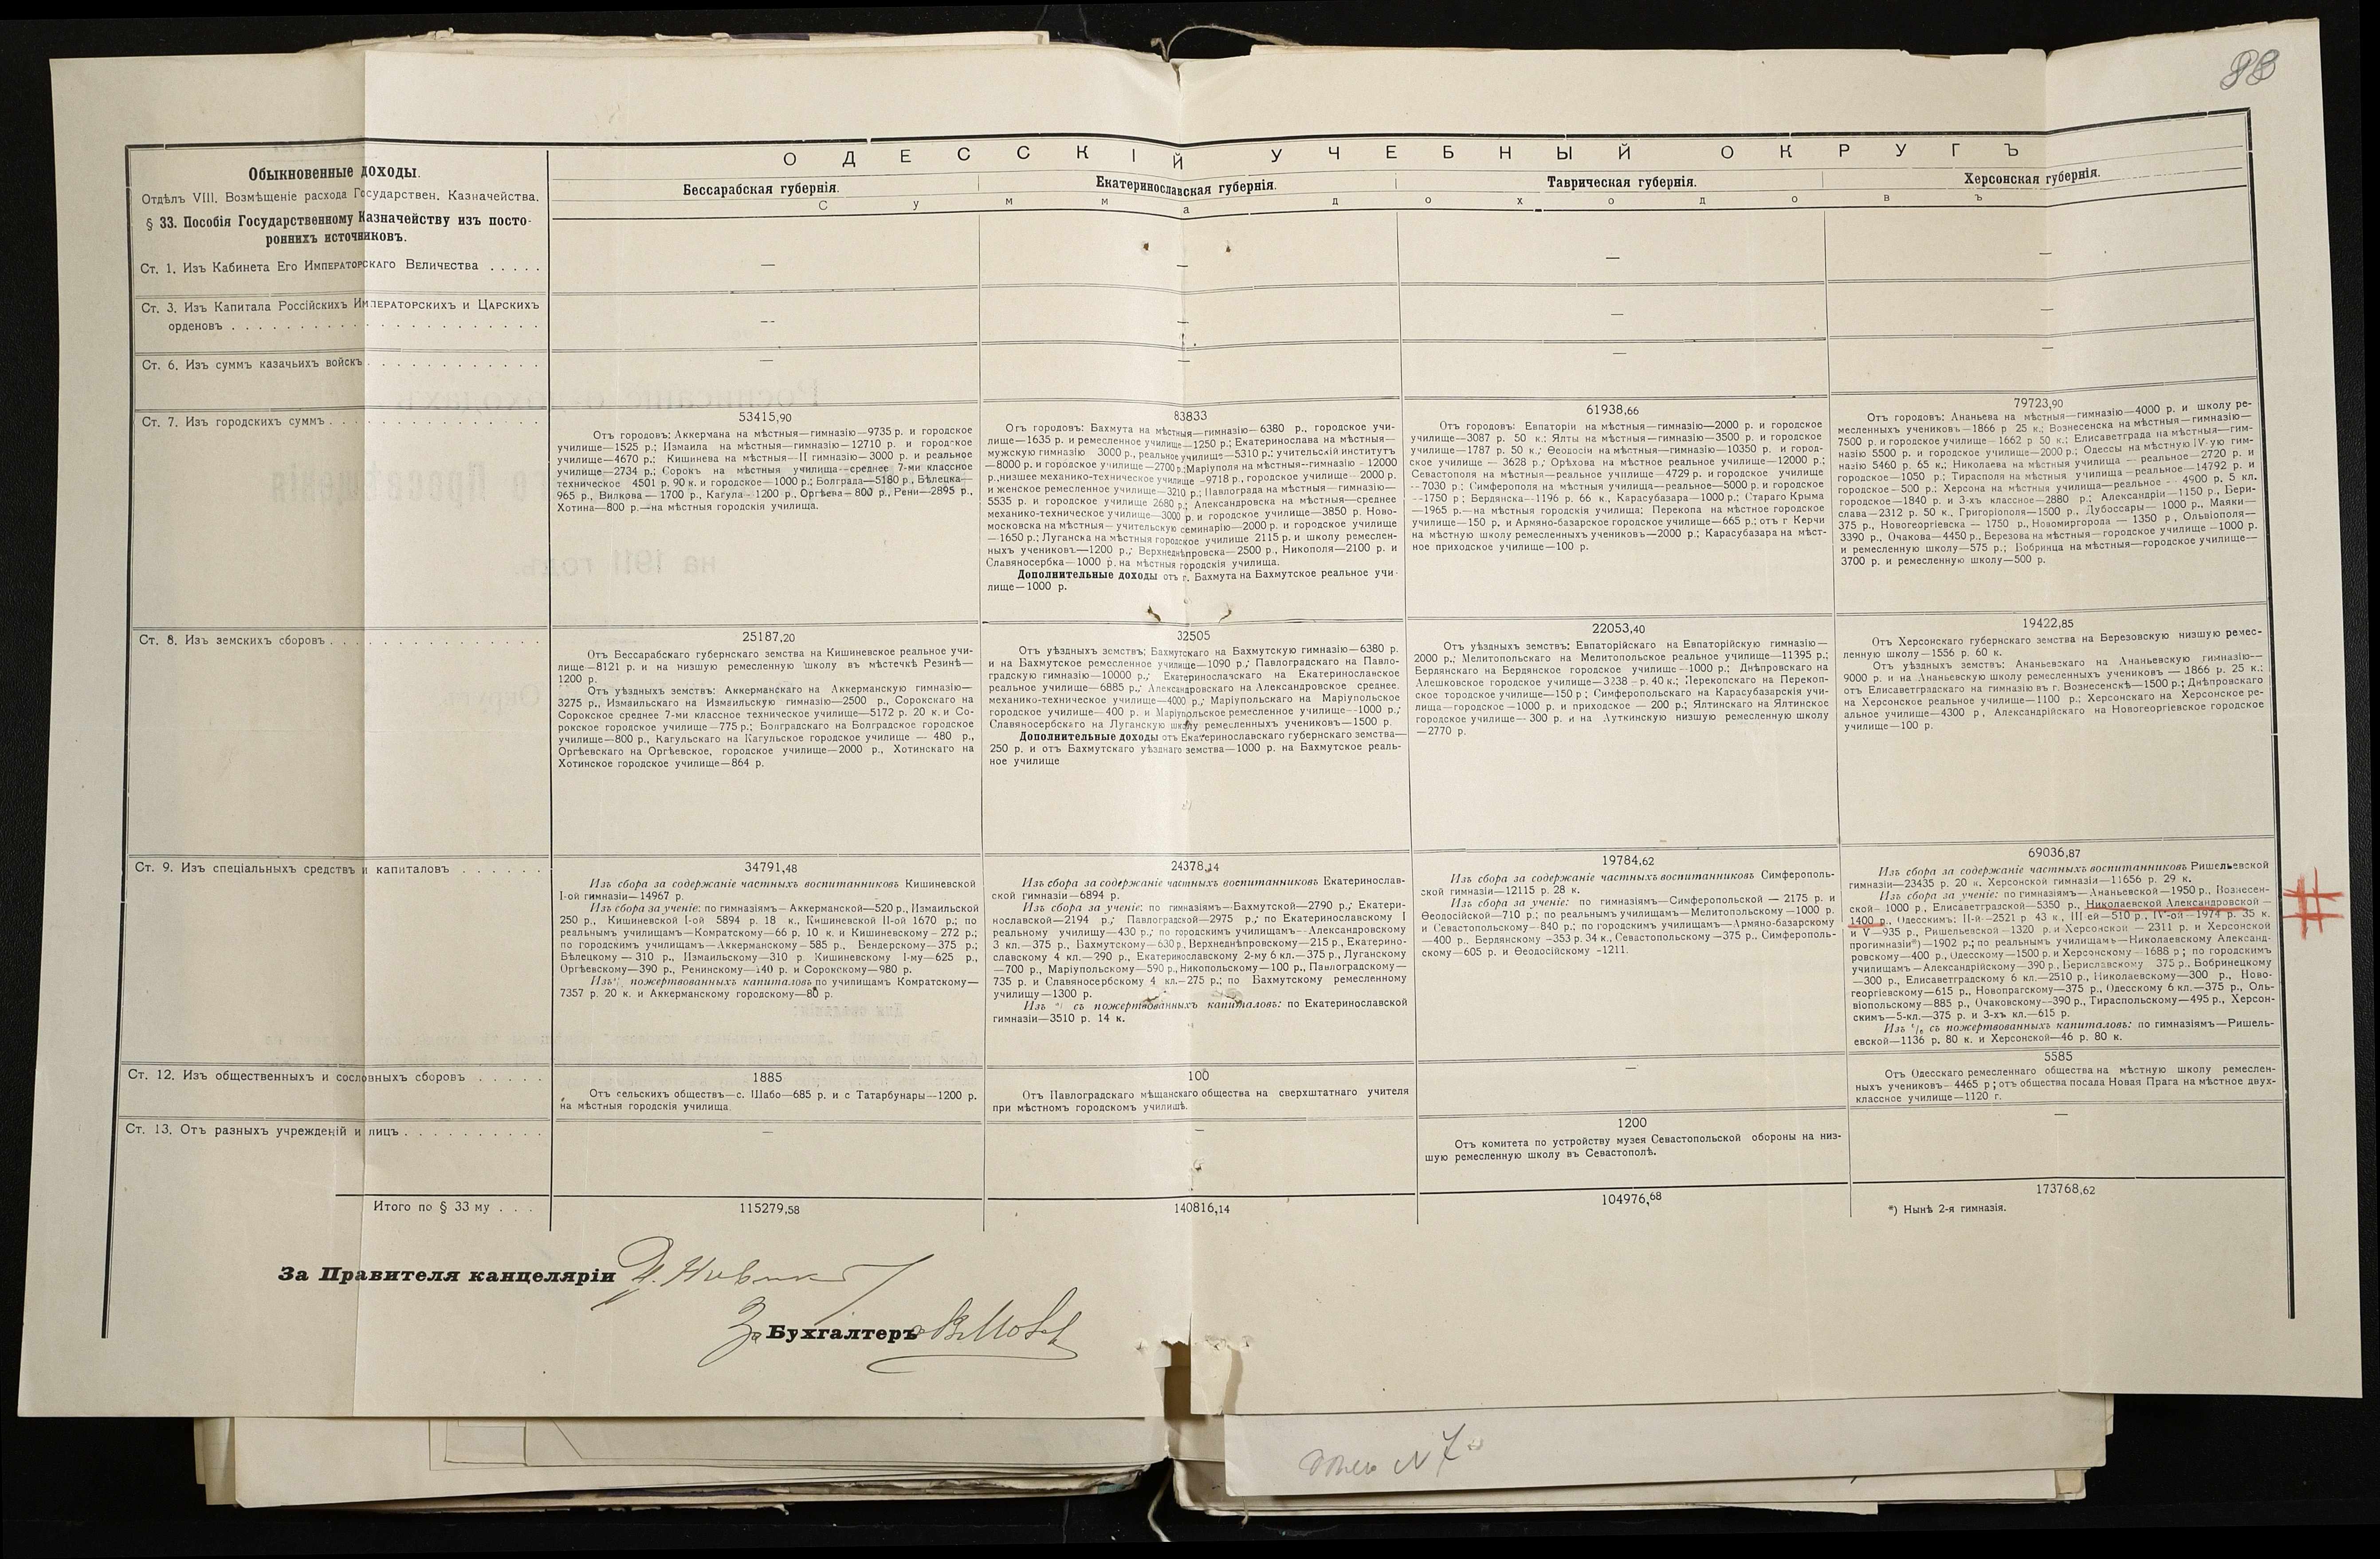 88
ОДЕССКІЙ УЧЕБНЫЙ ОКРУГЪ
Обыкновенные доходы.
Отдѣлъ VIII. Возмѣщеніе расхода Государствен. Казначейства.
§ 33. Пособія Государственному Казначейству изъ посто-
роннихъ источниковъ.
Бессарабская губернія.
Екатеринославская губернія.
Таврическая губернія.
Херсонская губернія.
Сумма доходовъ
Ст. 1. Изъ Кабинета Его Императорскаго Величества . . . . .
—
—
—
—
Ст. 3. Изъ Капитала Россійскихъ Императорскихъ и Царскихъ
орденовъ . . . . . . . . . . . . . . . . . . . . . .
—
—
—
—
Ст. 6. Изъ суммъ казачьихъ войскъ . . . . . . . . . . . .
—
—
—
—
Ст. 7. Изъ городскихъ суммъ . . . . . . . . . . . . . . .
53415,90
Отъ городовъ: Аккермана на мѣстныя—гимназію—9735 р. и городское
училище—1525 р.; Измаила на мѣстныя—гимназію—12710 р. и городское
училище—4670 р.; Кишинева на мѣстныя—II гимназію—3000 р. и реальное
училище—2734 р.; Сорокъ на мѣстныя училища—среднее 7-ми классное
техническое 4501 р. 90 к. и городское—1000 р.; Болграда—5180 р., Бѣлецка—
965 р., Вилкова—1700 р., Кагула—1200 р., Оргѣева—800 р., Рени—2895 р.,
Хотина—800 р.—на мѣстныя городскія училища.
83833
Отъ городовъ: Бахмута на мѣстныя—гимназію—6380 р., городское учи-
лище—1635 р. и ремесленное училище—1250 р.; Екатеринослава на мѣстныя—
мужскую гимназію 3000 р., реальное училище—5310 р.; учительскій институтъ
—8000 р. и городское училище—2700 р.; Маріуполя на мѣстныя—гимназію—12000
р., низшее механико-техническое училище—9718 р., городское училище—2000 р.
и женское ремесленное училище—3210 р.; Павлограда на мѣстныя—гимназію—
5535 р. и городское училище 2680 р.; Александровска на мѣстныя—среднее
механико-техническое училище—3000 р. и городское училище—3850 р. Ново-
московска на мѣстныя—учительскую семинарію—2000 р. и городское училище
—1650 р.; Луганска на мѣстныя городское училище 2115 р. и школу ремеслен-
ныхъ учениковъ—1200 р.; Верхнеднѣпровска—2500 р., Никополя—2100 р. и
Славяносербка—1000 р. на мѣстныя городскія училища.
Дополнительные доходы отъ г. Бахмута на Бахмутское реальное учи-
лище—1000 р.
61938,66
Отъ городовъ: Евпаторіи на мѣстныя—гимназію—2000 р. и городское
училище—3087 р. 50 к.; Ялты на мѣстныя—гимназію—3500 р. и городское
училище—1787 р. 50 к.; Ѳеодосіи на мѣстныя—гимназію—10350 р. и город-
ское училище — 3628 р.; Орѣхова на мѣстное реальное училище—12000 р.;
Севастополя на мѣстныя—реальное училище—4729 р. и городское училище
—7030 р.; Симферополя на мѣстныя училища—реальное—5000 р. и городское
—1750 р; Бердянска—1196 р. 66 к., Карасубазара—1000 р.; Стараго Крыма
—1965 р.—на мѣстныя городскія училища; Перекопа на мѣстное городское
училище—150 р. и Армяно-базарское городское училище—665 р.; отъ г Керчи
на мѣстную школу ремесленныхъ учениковъ—2000 р.; Карасубазара на мѣст-
ное приходское училище—100 р.
79723,90
Отъ городовъ: Ананьева на мѣстныя—гимназію—4000 р. и школу ре-
месленныхъ учениковъ—1866 р 25 к.; Вознесенска на мѣстныя—гимназію—
7500 р. и городское училище—1662 р 50 к.; Елисаветграда на мѣстныя—гим-
назію 5500 р. и городское училище—2000 р.; Одессы на мѣстную IV-ую гим-
назію 5460 р. 65 к.; Николаева на мѣстныя училища — реальное—2720 р. и
городское—1050 р.; Тирасполя на мѣстныя училища—реальное—14792 р. и
городское—500 р.; Херсона на мѣстныя училища—реальное — 4900 р. 5 кл.
городское—1840 р. и 3-хъ классное—2880 р.; Александріи—1150 р., Бери-
слава—2312 р. 50 к., Григоріополя—1500 р., Дубоссары— 1000 р., Маяки—
375 р., Новогеоргіевска — 1750 р., Новомиргорода — 1350 р., Ольвіополя—
3390 р., Очакова—4450 р., Березова на мѣстныя—городское училище—1000 р.
и ремесленную школу—575 р.; Бобринца на мѣстныя—городское училище—
3700 р. и ремесленную школу—500 р.
Ст. 8. Изъ земскихъ сборовъ . . . . . . . . . . . . . . .
25187,20
Отъ Бессарабскаго губернскаго земства на Кишиневское реальное учи-
лище—8121 р. и на низшую ремесленную школу въ мѣстечкѣ Резинѣ—
1200 р.
Отъ уѣздныхъ земствъ: Аккерманскаго на Аккерманскую гимназію—
3275 р., Измаильскаго на Измаильскую гимназію—2500 р., Сорокскаго на
Сорокское среднее 7-ми классное техническое училище—5172 р. 20 к. и Со-
рокское городское училище—775 р.; Болградскаго на Болградское городское
училище—800 р., Кагульскаго на Кагульское городское училище — 480 р.,
Оргѣевскаго на Оргѣевское, городское училище—2000 р., Хотинскаго на
Хотинское городское училище—864 р.
32505
Отъ уѣздныхъ земствъ: Бахмутскаго на Бахмутскую гимназію—6380 р.
и на Бахмутское ремесленное училище—1090 р.; Павлоградскаго на Павло-
градскую гимназію—10000 р.; Екатеринославскаго на Екатеринославское
реальное училище—6885 р.; Александровскаго на Александровское среднее.
механико-техническое училище—4000 р.; Маріупольскаго на Маріупольское
городское училище—400 р. и Маріупольское ремесленное училище—1000 р.;
Славяносербскаго на Луганскую школу ремесленныхъ учениковъ—1500 р.
Дополнительные доходы отъ Екатеринославскаго губернскаго земства—
250 р. и отъ Бахмутскаго уѣзднаго земства—1000 р. на Бахмутское реаль-
ное училище
22053,40
Отъ уѣздныхъ земствъ: Евпаторійскаго на Евпаторійскую гимназію—
2000 р.; Мелитопольскаго на Мелитопольское реальное училище—11395 р.;
Бердянскаго на Бердянское городское училище—1000 р.; Днѣпровскаго на
Алешковское городское училище—3238 р. 40 к.; Перекопскаго на Перекоп-
ское тородское училище—150 р; Симферопольскаго на Карасубазарскія учи-
лища—городское—1000 р. и приходское — 200 р.; Ялтинскаго на Ялтинское
городское училище—300 р. и на Ауткинскую низшую ремесленную школу
—2770 р.
19422,85
Отъ Херсонскаго губернскаго земства на Березовскую низшую ремес-
ленную школу—1556 р. 60 к.
Отъ уѣздныхъ земствъ: Ананьевскаго на Ананьевскую гимназію—
9000 р. и на Ананьевскую школу ремесленныхъ учениковъ — 1866 р. 25 к.;
отъ Елисаветградскаго на гимназію въ г. Вознесенскѣ—1500 р.; Днѣпровскаго
на Херсонское реальное училище—1100 р.; Херсонскаго на Херсонское ре-
альное училище—4300 р, Александрійскаго на Новогеоргіевское городское
училище—100 р.
Ст. 9. Изъ спеціальныхъ средствъ и капиталовъ . . . . . .
34791,48
Изъ сбора за содержаніе частныхъ воспитанниковъ Кишиневской
I-ой гимназіи—14967 р.
Изъ сбора за ученіе: по гимназіямъ—Аккерманской—520 р., Измаильской
250 р., Кишиневской I-ой 5894 р. 18 к., Кишиневской II-ой 1670 р.; по
реальнымъ училищамъ—Комратскому—66 р. 10 к. и Кишиневскому—272 р.;
по городскимъ училищамъ—Аккерманскому—585 р., Бендерскому—375 р.;
Бѣлецкому — 310 р., Измаильскому—310 р. Кишиневскому I-му—625 р.,
Оргѣевскому—390 р., Ренинскому—140 р. и Сорокскому—980 р.
Изъ пожертвованныхъ капиталовъ по училищамъ Комратскому—
7357 р. 20 к. и Аккерманскому городскому—80 р.
24378,14
Изъ сбора за содержаніе частныхъ воспитанниковъ Екатеринослав-
ской гимназіи—6894 р.
Изъ сбора за ученіе: по гимназіямъ—Бахмутской—2790 р.; Екатери-
нославской—2194 р.; Павлоградской—2975 р.; по Екатеринославскому I
реальному училищу—430 р.; по городскимъ училищамъ—Александровскому
3 кл.—375 р., Бахмутскому—630 р., Верхнеднѣпровскому—215 р., Екатерино-
славскому 4 кл.—290 р., Екатеринославскому 2-му 6 кл.—375 р., Луганскому
—700 р., Маріупольскому—590 р., Никопольскому—100 р., Павлоградскому—
735 р. и Славяносербскому 4 кл.—275 р.; по Бахмутскому ремесленному
училищу—1300 р.
Изъ % съ пожертвованныхъ капиталовъ: по Екатеринославской
гимназіи—3510 р. 14 к.
19784,62
Изъ сбора за содержаніе частныхъ воспитанниковъ Симферополь-
ской гимназіи—12115 р. 28 к.
Изъ сбора за ученіе: по гимназіямъ—Симферопольской — 2175 р. и
Ѳеодосійской—710 р.; по реальнымъ училищамъ—Мелитопольскому—1000 р.
и Севастопольскому—840 р.; по городскимъ училищамъ—Армяно-базарскому
—400 р., Бердянскому—353 р. 34 к., Севастопольскому—375 р., Симферополь-
скому—605 р. и Ѳеодосійскому -1211.
69036,87
Изъ сбора за содержаніе частныхъ воспитанниковъ Ришельевской
гимназіи—23435 р. 20 к. Херсонской гимназіи—11656 р. 29 к.
Изъ сбора за ученіе: по гимназіямъ—Ананьевской—1950 р., Вознесен-
ской—1000 р., Елисаветградской—5350 р., Николаевской Александровской —
1400 р., Одесскимъ: II-й—2521 р 43 к., III-ей—510 р., IV-ой—1974 р. 35 к.
и V—935 р., Ришельевской—1320 р. и Херсонской — 2311 р. и Херсонской
прогимназіи*)—1902 р.; по реальнымъ училищамъ—Николаевскому Александ-
ровскому—400 р., Одесскому—1500 р. и Херсонскому—1688 р; по городскимъ
училищамъ—Александрійскому—390 р., Бериславскому 375 р., Бобринецкому
—300 р., Елисаветградскому 6 кл.—2510 р., Николаевскому—300 р., Ново-
георгіевскому—615 р., Новопрагскому—375 р., Одесскому 6 кл.—375 р., Оль-
віопольскому—885 р., Очаковскому—390 р., Тираспольскому—495 р., Херсон-
скимъ—5-кл.—375 р. и 3-хъ кл.—615 р.
Изъ % съ пожертвованныхъ капиталовъ: по гимназіямъ—Ришель-
евской—1136 р. 80 к. и Херсонской—46 р. 80 к.
Ст. 12. Изъ общественныхъ и сословныхъ сборовъ . . . . .
1885
Отъ сельскихъ обществъ—с. Шабо—685 р. и с Татарбунары—1200 р.
на мѣстныя городскія училища
100
Отъ Павлоградскаго мѣщанскаго общества на сверхштатнаго учителя
при мѣстномъ городскомъ училищѣ.
—
5585
Отъ Одесскаго ремесленнаго общества на мѣстную школу ремеслен-
ныхъ учениковъ—4465 р; отъ общества посада Новая Прага на мѣстное двух-
классное училище—1120 г.
Ст. 13. Отъ разныхъ учрежденій и лицъ . . . . . . . . . .
—
—
1200
Отъ комитета по устройству музея Севастопольской обороны на низ-
шую ремесленную школу въ Севастополѣ.
—
Итого по § 33 му . . .
115279,58
140816,14
104976,68
173768,62
*) Нынѣ 2-я гимназія.
За Правителя канцеляріи
За Бухгалтеръ
N 7